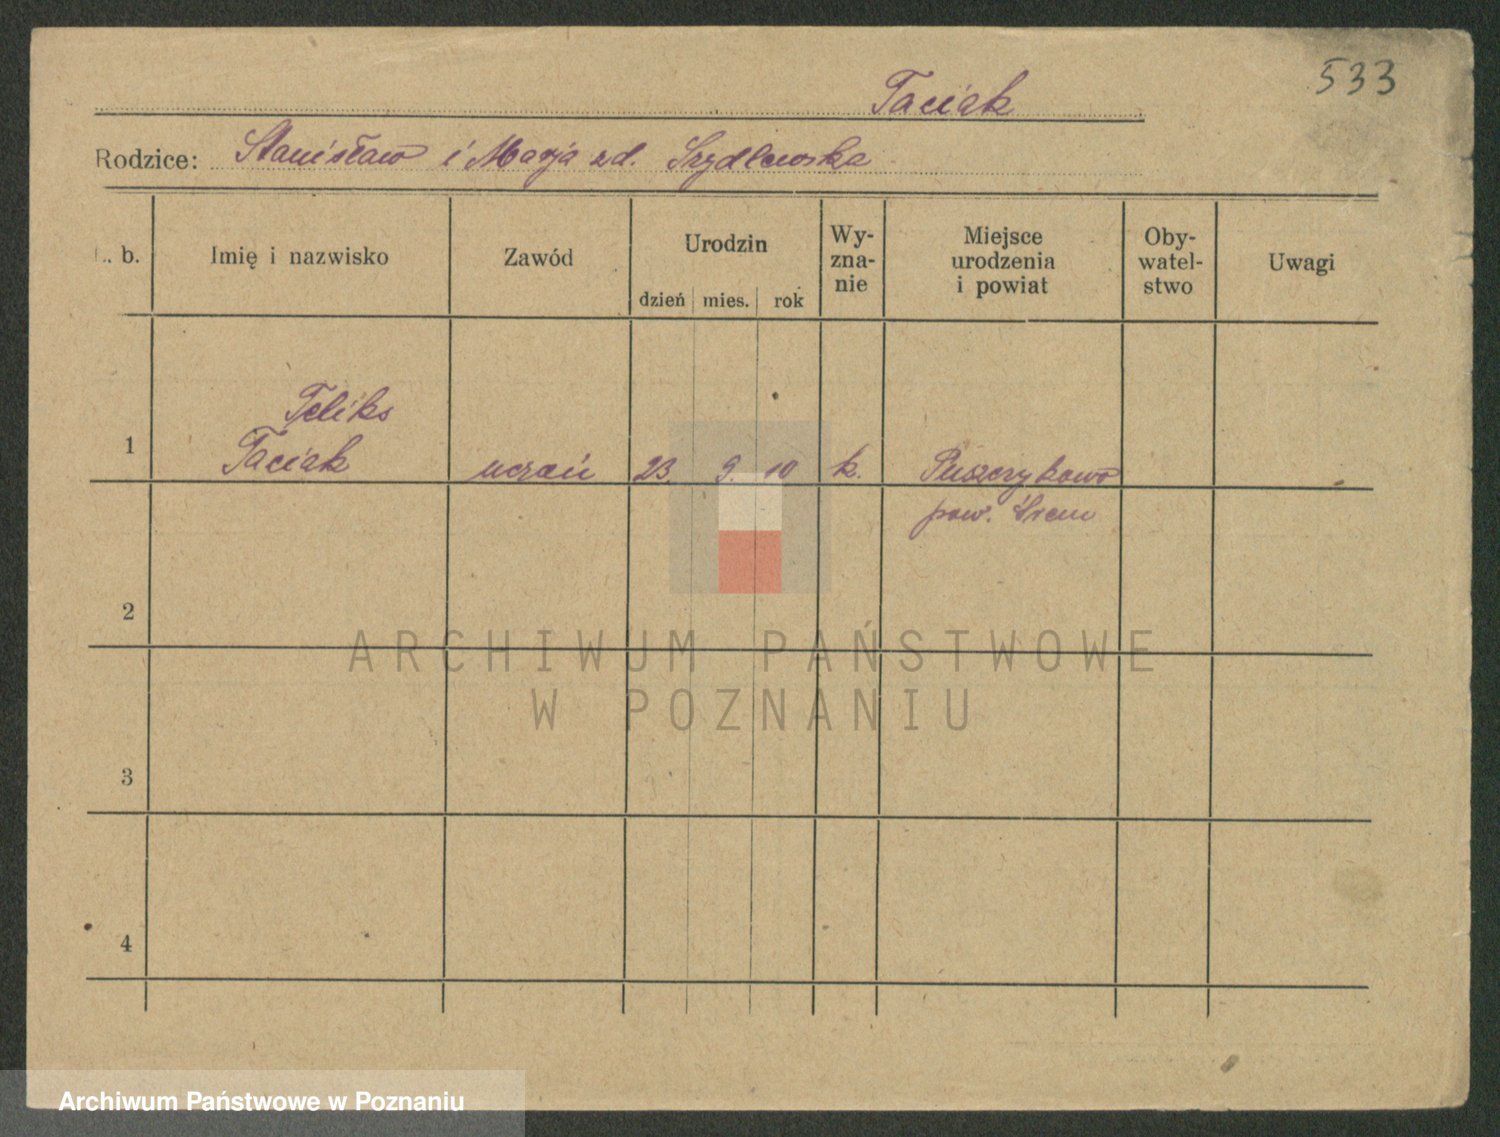 533
Taciak
Rodzice: Stanisław i Marja zd. Szydlewska
L. b.
Imię i nazwisko
Zawód
Urodzin
dzień mies. rok
Wy-
zna-
nie
Miejsce
urodzenia
i powiat
Oby-
watel-
stwo
Uwagi
Feliks
1 Taciak uczeń 23. 9. 10 k. Puszczykowo
pow. Śrem
2
ARCHIWUM PAŃSTWOWE
W POZNANIU
3
4
Archiwum Państwowe w Poznaniu